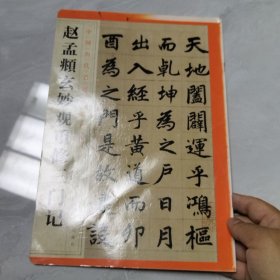 天地闔闢運乎鴻樞
而乾坤為之戶日月
出入經乎黃道而卯
酉為之門是故設
赵孟頫玄妙观重修三门记